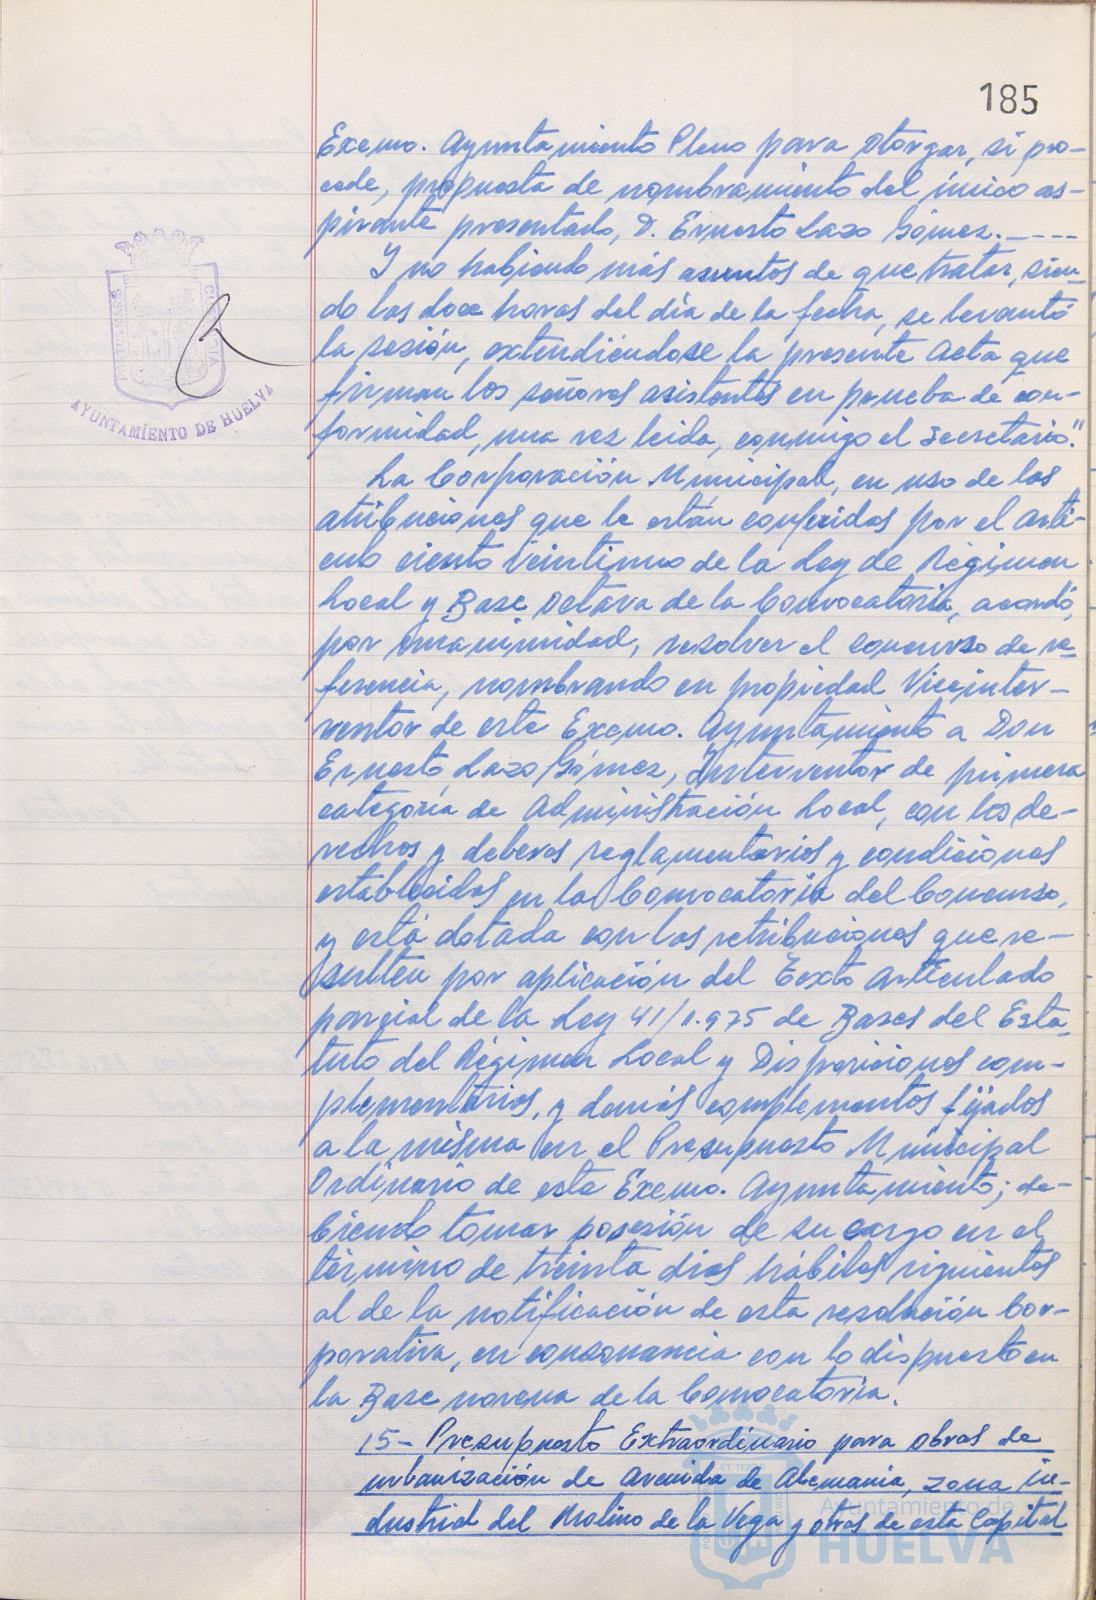 185
Excmo. Ayuntamiento Pleno para otorgar, si pro-
cede, propuesta de nombramiento del único as-
pirante presentado, D. Ernesto Lazo Gómez.----
Y no habiendo más asuntos de que tratar, sien-
do las doce horas del día de la fecha, se levantó
la sesión, extendiéndose la presente Acta que
firman los señores asistentes en prueba de con-
formidad, una vez leida, conmigo el Secretario."
La Corporación Municipal, en uso de las
atribuciones que le están conferidas por el artí-
culo ciento veintiuno de la Ley de Régimen
Local y Base Octava de la Convocatoria, acordó,
por unanimidad, resolver el concurso de re-
ferencia, nombrando en propiedad Viceinter-
ventor de este Excmo. Ayuntamiento a Don
Ernesto Lazo Gómez, Interventor de primera
categoría de Administración Local, con los de-
rechos y deberes reglamentarios y condiciones
establecidas en la Convocatoria del Concurso,
y está dotada con las retribuciones que re-
sulten por aplicación del Texto articulado
parcial de la Ley 41/1.975 de Bases del Esta-
tuto del Régimen Local y Disposiciones com-
plementarias, y demás complementos fijados
a la misma en el Presupuesto Municipal
Ordinario de este Excmo. Ayuntamiento; de-
biendo tomar posesión de su cargo en el
término de treinta dias hábiles siguientes
al de la notificación de esta resolución Cor-
porativa, en consonancia con lo dispuesto en
la Base novena de la Convocatoria.
15- Presupuesto Extraordinario para obras de
urbanización de Avenida de Alemania, zona in-
dustrial del Molino de la Vega y otras de esta Capital
AYUNTAMIENTO DE HUELVA
Ayuntamiento de
HUELVA